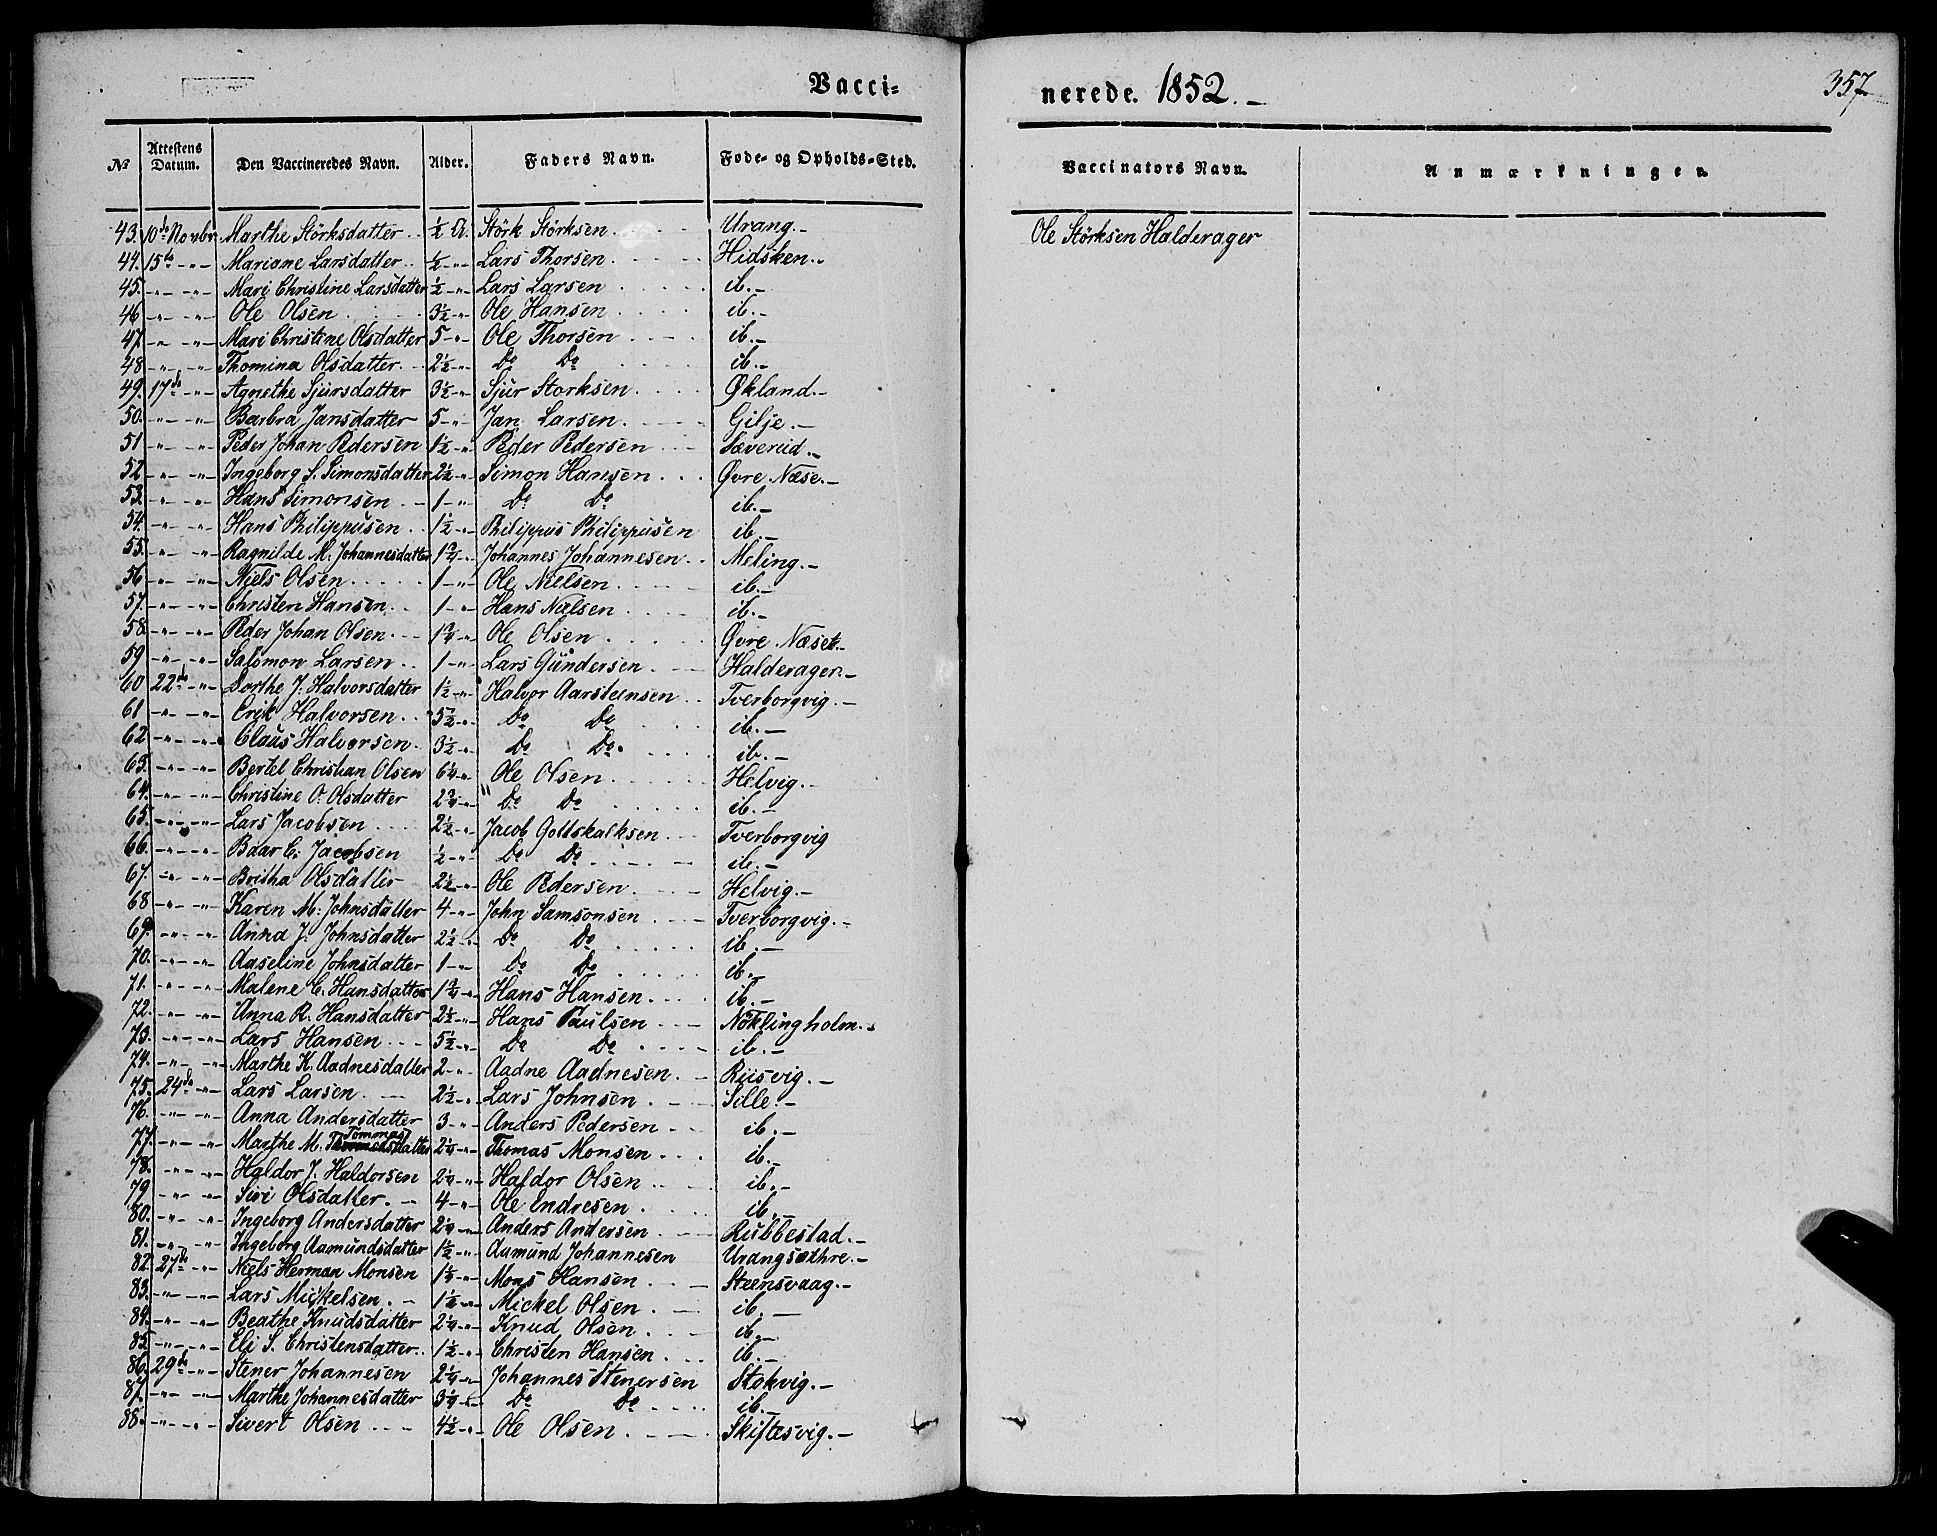 Vacci=
nerede. 1852.–
357
No Attestens Datum. Den Vaccineredes Navn. Alder. Faders Navn. Føde- og Opholds-Sted. Vaccinators Navn. Anmærkninger.
43. 10de Novbr Marthe Störksdatter ½ A. Störk Störksen Urang.– Ole Störksen Halderager
44. 15de -"- Mariane Larsdatter ½ -"- Lars Thorsen Hidsken.-
45. -"- -"- Mari Christine Larsdatter ½ -"- Lars Larsen ib.–
46 -"- -"- Ole Olsen 3½ -"- Ole Hansen ib.–
47. -"- -"- Mari Christine Olsdatter 5 -"- Ole Thorsen ib.–
48 -"- -"- Thomina Olsdatter 2½ -"- Do Do ib.–
49. 17de -"- Agnethe Sjursdatter 3½ -"- Sjur Storksen Økland.–
50. -"- -"- Barbra Jansdatter 5 -"- Jan Larsen Gilje.–
51 -"- -"- Peder Johan Pedersen 1½ -"- Peder Pedersen Sæverud.–
52 -"- -"- Ingeborg S. Simonsdatter 2½ -"- Simon Hansen Øvre Næse.–
53. -"- -"- Hans Simonsen 1 -"- Do Do ib.–
54. -"- -"- Hans Philippusen 1½ -"- Philippus Philippusen ib.–
55. -"- -"- Ragnilde M. Johannesdatter 1¾ -"- Johannes Johannesen Meling.–
56 -"- -"- Niels Olsen 1 -"- Ole Nielsen ib.–
57. -"- -"- Christen Hansen 1 -"- Hans Nielsen ib.–
58. -"- -"- Peder Johan Olsen 1¾ -"- Ole Olsen Øvre Næse.–
59 -"- -"- Salomon Larsen 1 -"- Lars Gundersen Halderager.–
60 22de -"- Dorthe J. Halvorsdatter 1½ -"- Halvor Aarsteinsen Tverborgvig.–
61 -"- -"- Erik Halvorsen 5½ -"- Do Do ib.–
62 -"- -"- Claus Halvorsen 3½ -"- Do Do ib.–
63. -"- -"- Bertel Christian Olsen 6¼ -"- Ole Olsen Helvig.–
64. -"- -"- Christine O. Olsdatter 2¾ -"- Do Do ib.–
65. -"- -"- Lars Jacobsen 2½ -"- Jacob Gottskalksen Tverborgvig
66. -"- -"- Baar C. Jacobsen ½ -"- Do Do ib.–
67. -"- -"- Britha Olsdatter 2½ -"- Ole Pedersen Helvig.–
68 -"- -"- Karen M. Johnsdatter 4 -"- John Samsonsen Tverborgvig.–
69. -"- -"- Anna J. Johnsdatter 2½ -"- Do Do ib.–
70. -"- -"- Aaseline Johnsdatter 1 -"- Do Do ib.–
71. -"- -"- Malene C. Hansdatter 1¾ -"- Hans Hansen ib.–
72. -"- -"- Anna R. Hansdatter 2½ -"- Hans Paulsen Nöklingholm.-
73. -"- -"- Lars Hansen 5½ -"- Do Do ib.–
74. -"- -"- Marthe K. Aadnesdatter 2 -"- Aadne Aadnesen Riisvig.–
75. 24de -"- Lars Larsen 2½ -"- Lars Johnsen Sille.–
76. -"- -"- Anna Andersdatter 3 -"- Anders Pedersen ib.–
77. -"- -"- Marthe M. Tommasdatter 2¼ -"- Thomas Monsen ib.–
78. -"- -"- Haldor J. Haldorsen 2¼ -"- Haldor Olsen ib.–
79 -"- -"- Siri Olsdatter 4 -"- Ole Endresen ib.–
80. -"- -"- Ingeborg Andersdatter 2¼ -"- Anders Andersen Rubbestad.–
81. -"- -"- Ingeborg Aamundsdatter 1½ -"- Aamund Johannesen Urangsæthre.–
82. 27de -"- Niels Herman Monsen 1¼ -"- Mons Hansen Steensvaag.–
83. -"- -"- Lars Mickelsen 1½ -"- Mickel Olsen ib.–
84. -"- -"- Beathe Knudsdatter 2¼ -"- Knud Olsen ib.–
85 -"- -"- Eli S. Christensdatter 1½ -"- Christen Hansen ib.–
86. 29de -"- Stener Johannesen 2¼ -"- Johannes Stenersen Stokvig.–
87. -"- -"- Marthe Johannesdatter 3¼ -"- Do Do ib.–
88. -"- -"- Sivert Olsen 4½ -"- Ole Olsen Skiftesvig.–